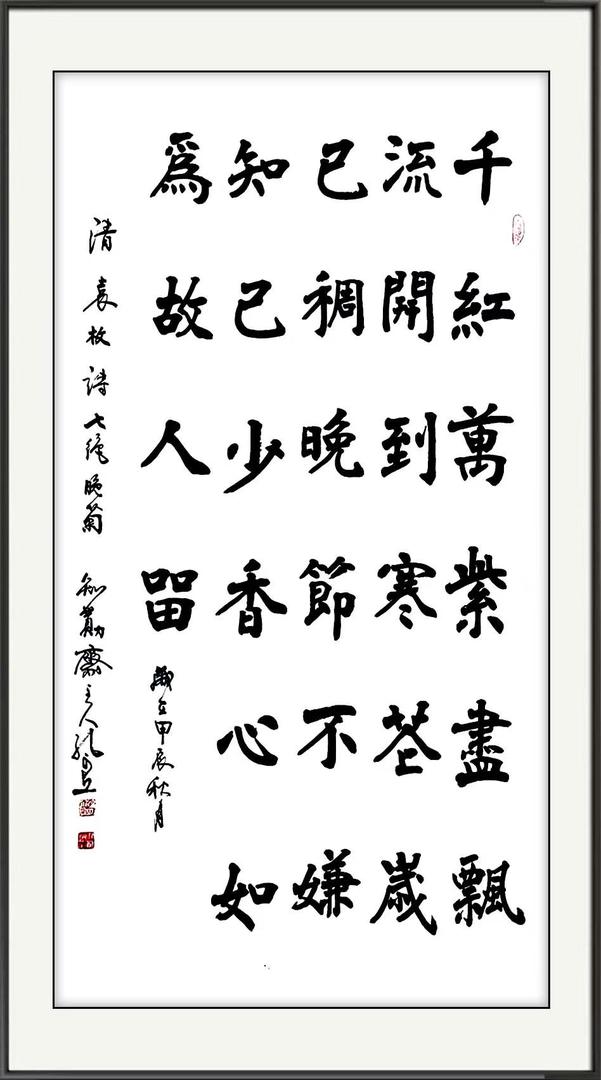 千紅萬紫盡飄
流開到寒花歲
已稠晚節不嫌
知己少香心如
爲故人留
歲在甲辰秋月
清袁枚詩七絕晚菊 知勤齋主人